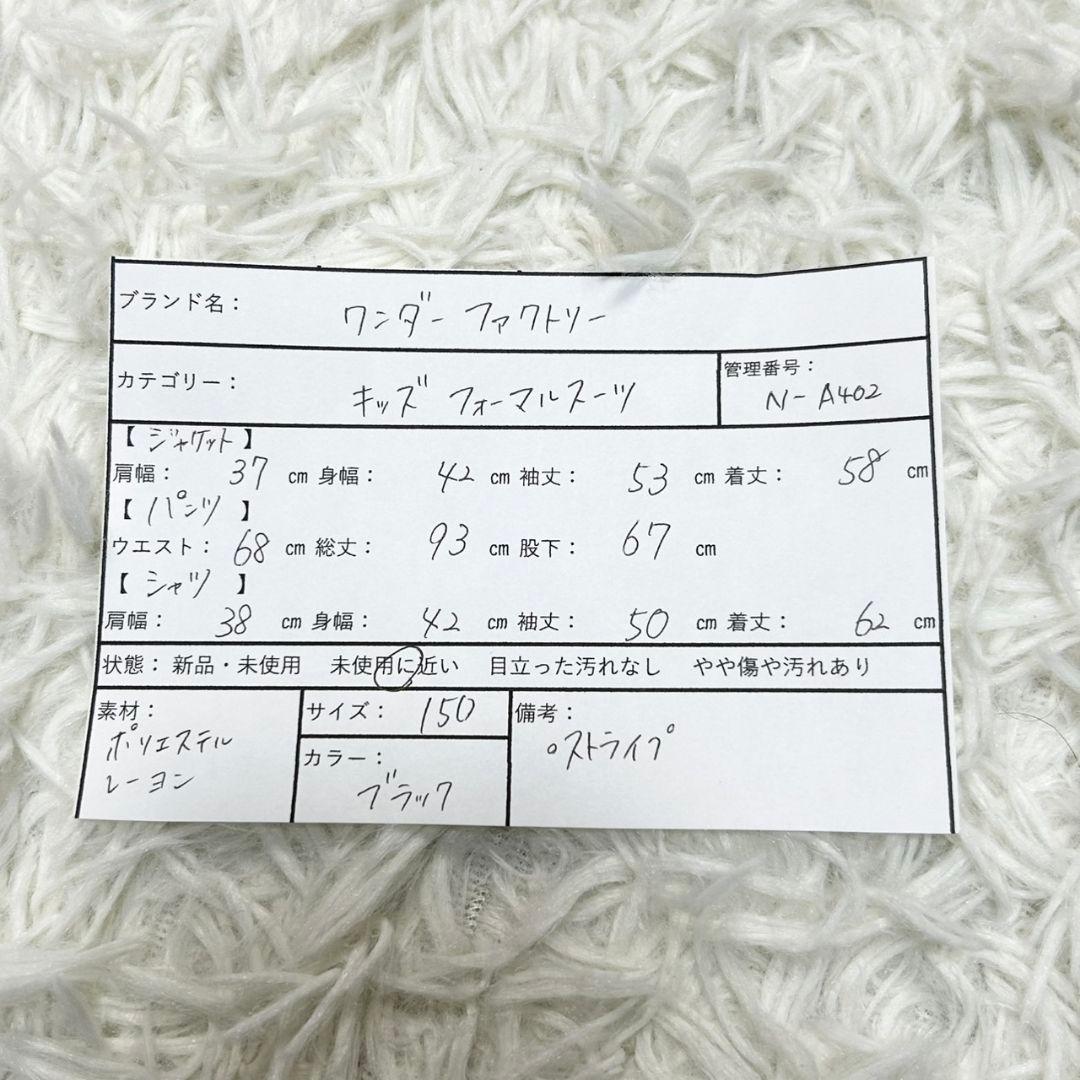 ブランド名： ワンダーファクトリー
カテゴリー： キッズ フォーマルスーツ 管理番号： N-A402
【ジャケット】
肩幅： 37 cm 身幅： 42 cm 袖丈： 53 cm 着丈： 58 cm
【パンツ】
ウエスト： 68 cm 総丈： 93 cm 股下： 67 cm
【シャツ】
肩幅： 38 cm 身幅： 42 cm 袖丈： 50 cm 着丈： 62 cm
状態： 新品・未使用 未使用に近い 目立った汚れなし やや傷や汚れあり
素材：
ポリエステル
レーヨン
サイズ： 150
カラー：
ブラック
備考：
・ストライプ